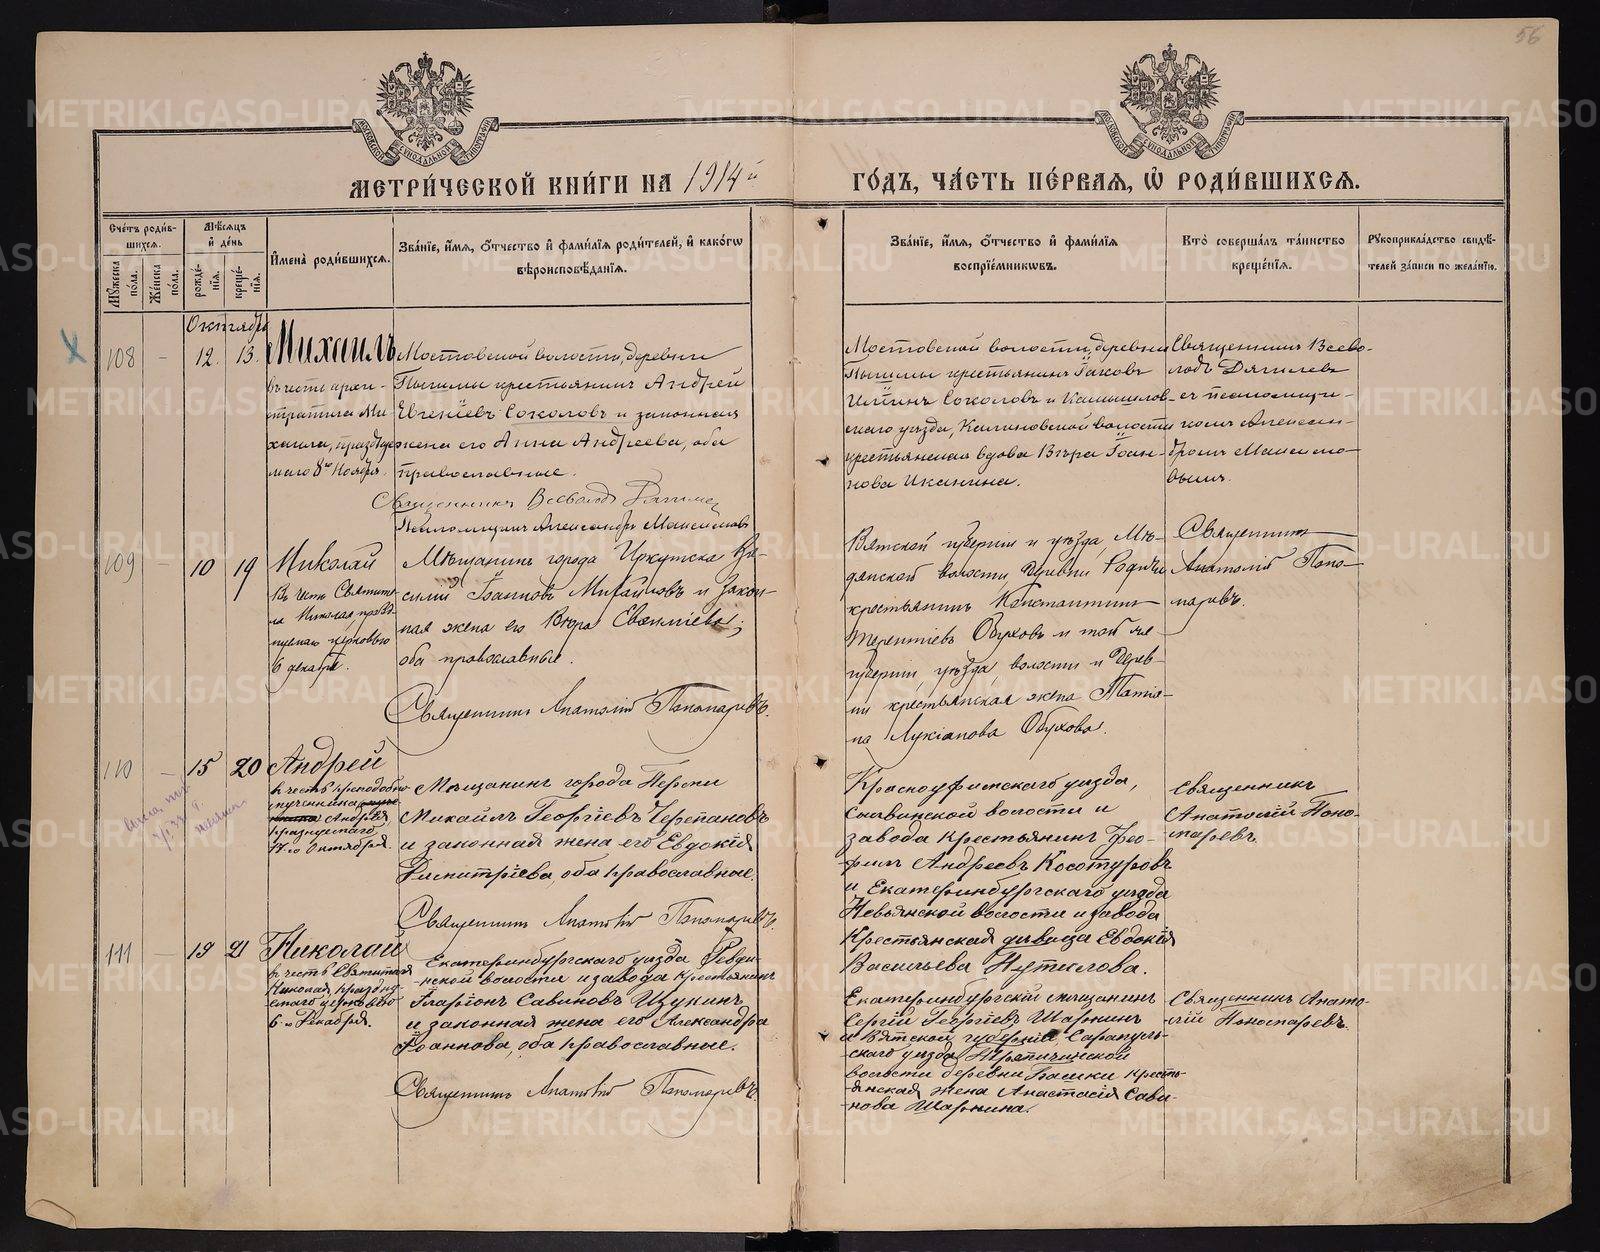 56
МОСКОВСКОЙ СѴНОДАЛЬНОЙ ТИПОГРАФІИ
МОСКОВСКОЙ СѴНОДАЛЬНОЙ ТИПОГРАФІИ
МЕТРИ́ЧЕСКОЙ КНИ́ГИ НА 1914й ГО́ДЪ, ЧА́СТЬ ПЕ́РВАЯ, Ѡ҆ РОДИ́ВШИХСЯ.
Сче́тъ роди́в-
шихся.
Му́жеска по́ла.
Же́нска по́ла.
Мѣ́сяцъ
и҆ де́нь
рожде́-
нія.
креще́-
нія.
И҆мена̀ роди́вшихся.
Зва́ніе, и҆́мя, о҆́тчество и҆ фами́лія роди́телей, и҆ како́гѡ
вѣроисповѣ́данія.
Зва́ніе, и҆́мя, о҆́тчество и҆ фами́лія
воспріе́мникѡвъ.
Кто̀ соверша́лъ та́инство
креще́нія.
Рꙋкоприкла́дство свидѣ́-
телей за́писи по жела́нію.
Октября
108 - 12. 13. Михаилъ
въ честь архи-
стратига Ми-
хаила, празднуе-
маго 8го Ноября.
Мостовской волости, деревни
Пышмы крестьянинъ Андрей
Евгеніевъ Соколовъ и законная
жена его Анна Андреева, оба
православные.
Священникъ Всеволодъ Дягилев
Псаломщикъ Александръ Максимовъ
Мостовской волости, деревни
Пышмы крестьянинъ Іаковъ
Ильинъ Соколовъ и Камышлов-
скаго уѣзда, Калиновской волости
крестьянская вдова Вѣра Іоан-
нова Иканина.
Священникъ Всево-
лодъ Дягилевъ
съ псаломщи-
комъ Алексан-
дромъ Максимо-
вымъ.
109 - 10 19 Николай
Въ честь Святите-
ля Николая, празд-
нуемаго церковью
6 декабря.
Мѣщанинъ города Иркутска Ва-
силій Іоанновъ Михайловъ и закон-
ная жена его Вѣра Евѳиміева;
оба православные.
Священникъ Анатолій Пономаревъ.
Вятской губерніи и уѣзда, Мѣ-
дянской волости, деревни Родичи
крестьянинъ Константинъ
Терентіевъ Обуховъ и той же
губерніи, уѣзда, волости и дерев-
ни крестьянская жена Татія-
на Лукіанова Обухова.
Священникъ
Анатолій Поно-
маревъ.
110 - 15 20 Андрей
въ честь преподобно
мученика
Андрея,
празднуемаго
17го Октября.
Мѣщанинъ города Перми
Михаилъ Георгіевъ Черепановъ
и законная жена его Евдокія
Димитріева, оба православные.
Священникъ Анатолій Пономаревъ.
Красноуфимскаго уѣзда,
Сылвинской волости и
завода крестьянинъ Ѳео-
филъ Андреевъ Косотуровъ
и Екатеринбургскаго уѣзда
Невьянской волости и завода
Крестьянская дѣвица Евдокія
Васильева Путилова.
Священникъ
Анатолій Поно-
маревъ.
111 - 19 21 Николай
въ честь Святителя
Николая, праздну-
емаго церковью
6го Декабря.
Екатеринбургскаго уѣзда Ревди-
нской волости и завода крестьянинъ
Иларіонъ Савиновъ Щукинъ
и законная жена его Александра
Іоаннова, оба православные.
Священникъ Анатолій Пономаревъ.
Екатеринбургскій мѣщанинъ
Сергій Георгіевъ Шаркинъ
и Вятской губерніи, Сарапуль-
скаго уѣзда,
волости деревни Кресть-
янская жена Анастасія Сави-
нова Шаркина.
Священникъ Анато-
лій Пономаревъ.
METRIKI.GASO-URAL.RU